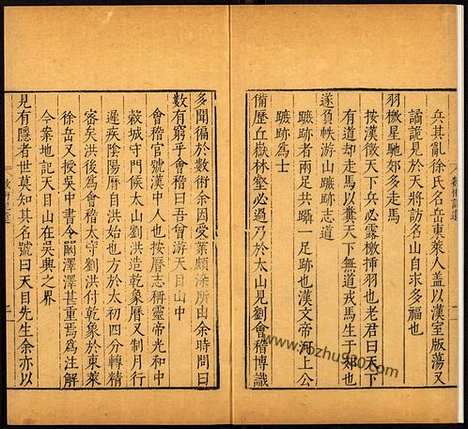 兵其亂徐氏名岳東萊人蓋以漢室版蕩又
譎詭見於天將訪名山自求多福也
羽檄星馳郊多走馬
按漢徵天下兵必露檄插羽也老君曰天下
有道却走馬以糞天下無道戎馬生于郊也
遂負帙游山躡跡志道
躡跡者兩足共躡一足跡也漢文帝河上公
躡跡為士
備歷丘嶽林壑必過乃於太山見劉會稽博識
多聞徧於數術余因受業頗染所由余時問曰
數有窮乎會稽曰吾曾游天目山中
會稽官號漢中人也按曆志稱靈帝光和中
榖城守門候太山劉洪造乾象曆又制月行
遲疾陰陽曆自洪始也方於太初四分轉精
矣洪後為太守劉洪付乾象於東萊
徐岳又授吳中書令闞澤澤甚重焉為注解
今案地記天目山在吳興之界
見有隱者世莫知其名號曰天目先生余亦以